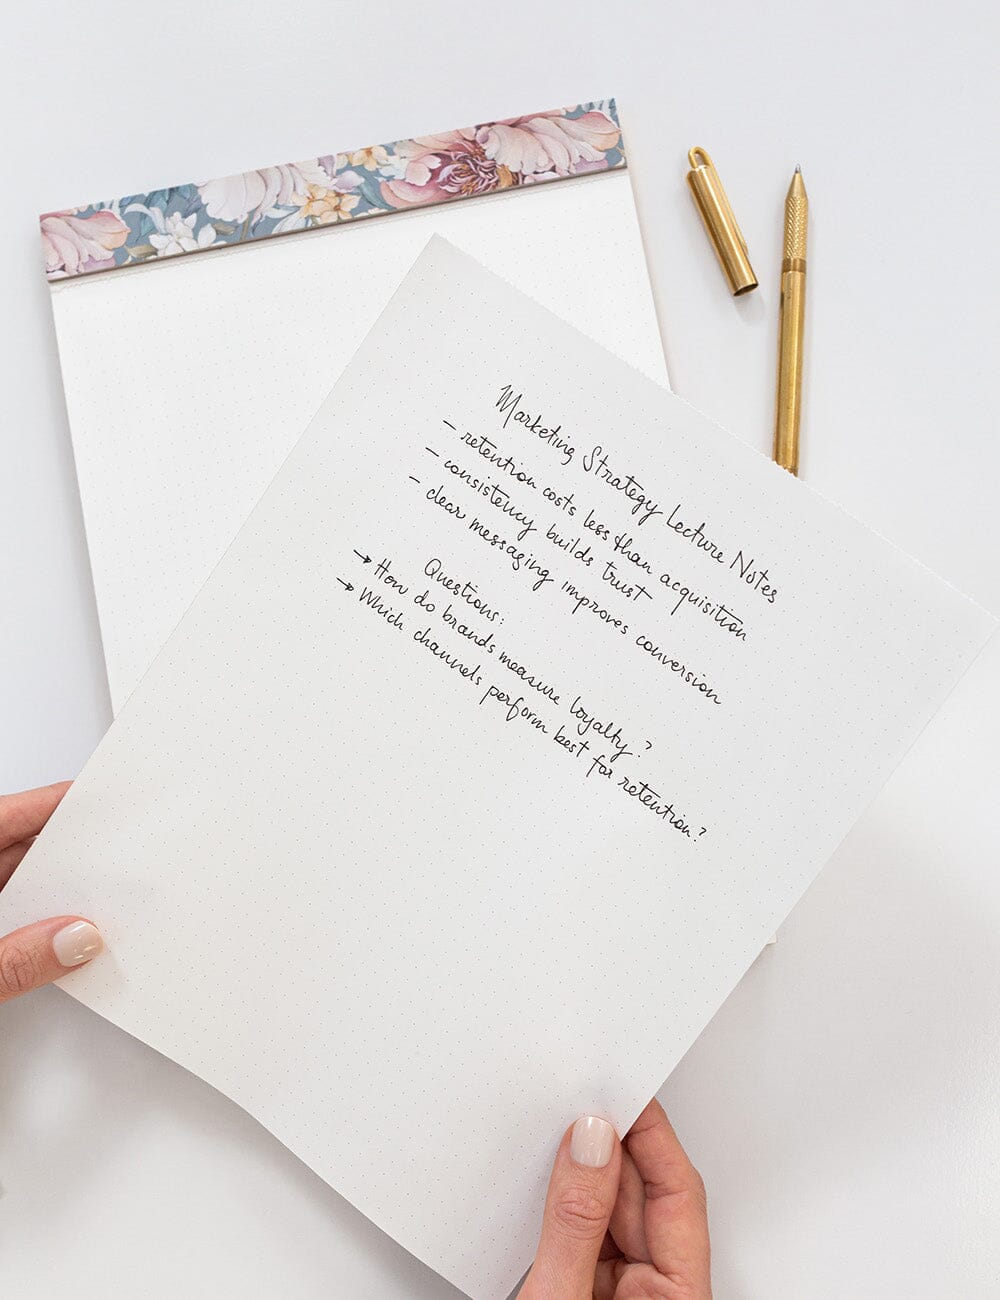 Marketing Strategy Lecture Notes
- retention costs less than acquisition
- consistency builds trust
- clear messaging improves conversion
Questions:
→ How do brands measure loyalty?
→ Which channels perform best for retention?